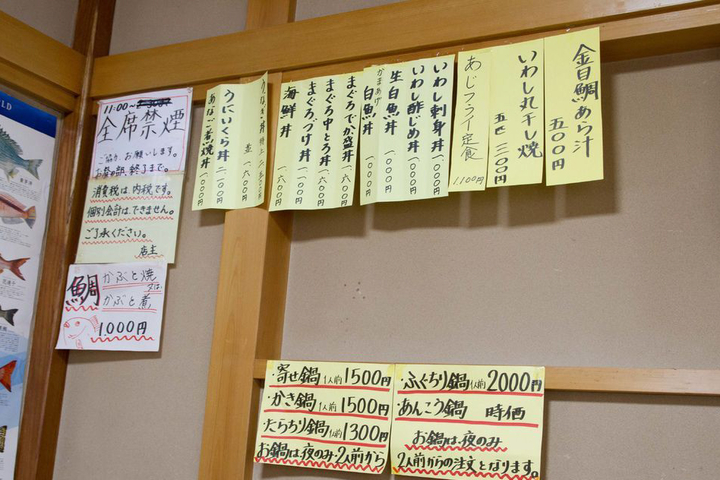 金目鯛あら汁
五〇〇円
いわし丸干し焼
あじフライ定食
1,100円
いわし刺身丼 一、〇〇〇円
いわし酢じめ丼 一、〇〇〇円
生白魚丼 一、〇〇〇円
かまあげ
白魚丼 一、〇〇〇円
まぐろでか盛丼 一、六〇〇円
まぐろ中とろ丼 一、六〇〇円
まぐろづけ丼 一、六〇〇円
海鮮丼 一、六〇〇円
うにいくら丼 二、一〇〇円
あなご煮焼丼 一、〇〇〇円
11:00~
全席禁煙
ご協力お願いします。
お昼の部、終了まで。
消費税は、内税です。
個別会計は、できません。
ご了承ください。
店主
鯛かぶと焼
又は
かぶと煮
1,000円
・寄せ鍋1人前1500円
・かき鍋1人前1500円
・たらちり鍋1人前1300円
お鍋は、夜のみ・2人前から
・ふぐちり鍋1人前2000円
・あんこう鍋 時価
お鍋は、夜のみ
2人前からの注文となります。